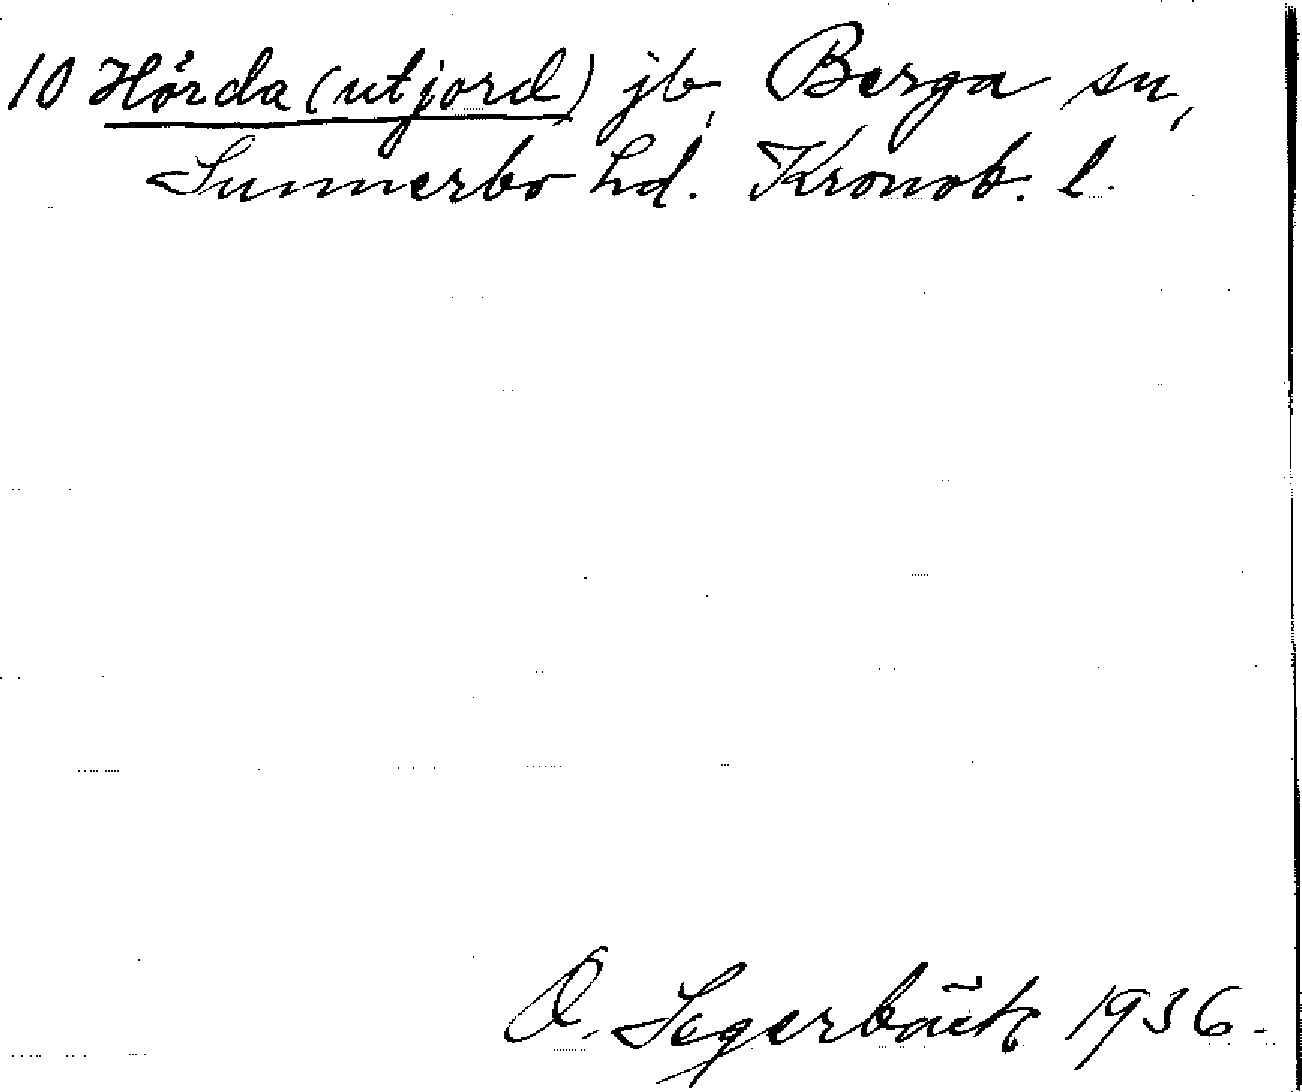 10 Hörda (utjord) jb, Berga sn,
Sunnerbo hd. Kronob. l.
O. Segerbäck 1936.